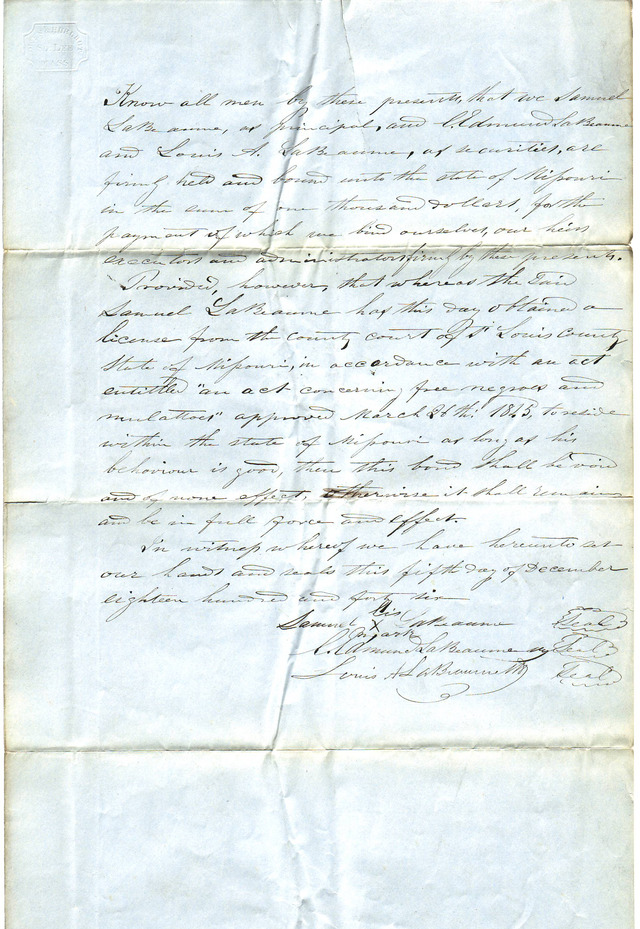 Know all men by these presents, that we Samuel
LaBeaume, as principal, and C. Edmund LaBeaume
and Louis A. LaBeaume, as securities, are
firmly held and bound unto the state of Missouri
in the sum of one thousand dollars, for the
payment of which we bind ourselves, our heirs
executors and administrators firmly by these presents.
Provided, however, that whereas the said
Samuel LaBeaume has this day obtained a
license from the county court of St Louis County
State of Missouri, in accordance with an act
entitled "an act concerning free negroes and
mulattoes" approved March 26th 1845, to reside
within the state of Missouri as long as his
behaviour is good, then this bond shall be void
and of none effect, otherwise it shall remain
and be in full force and effect.
In witness whereof we have hereunto set
our hands and seals this fifth day of December
eighteen hundred and forty six
Samuel his X mark LaBeaume Seal
C. Edmund LaBeaume Seal
Louis A LaBeaume Seal